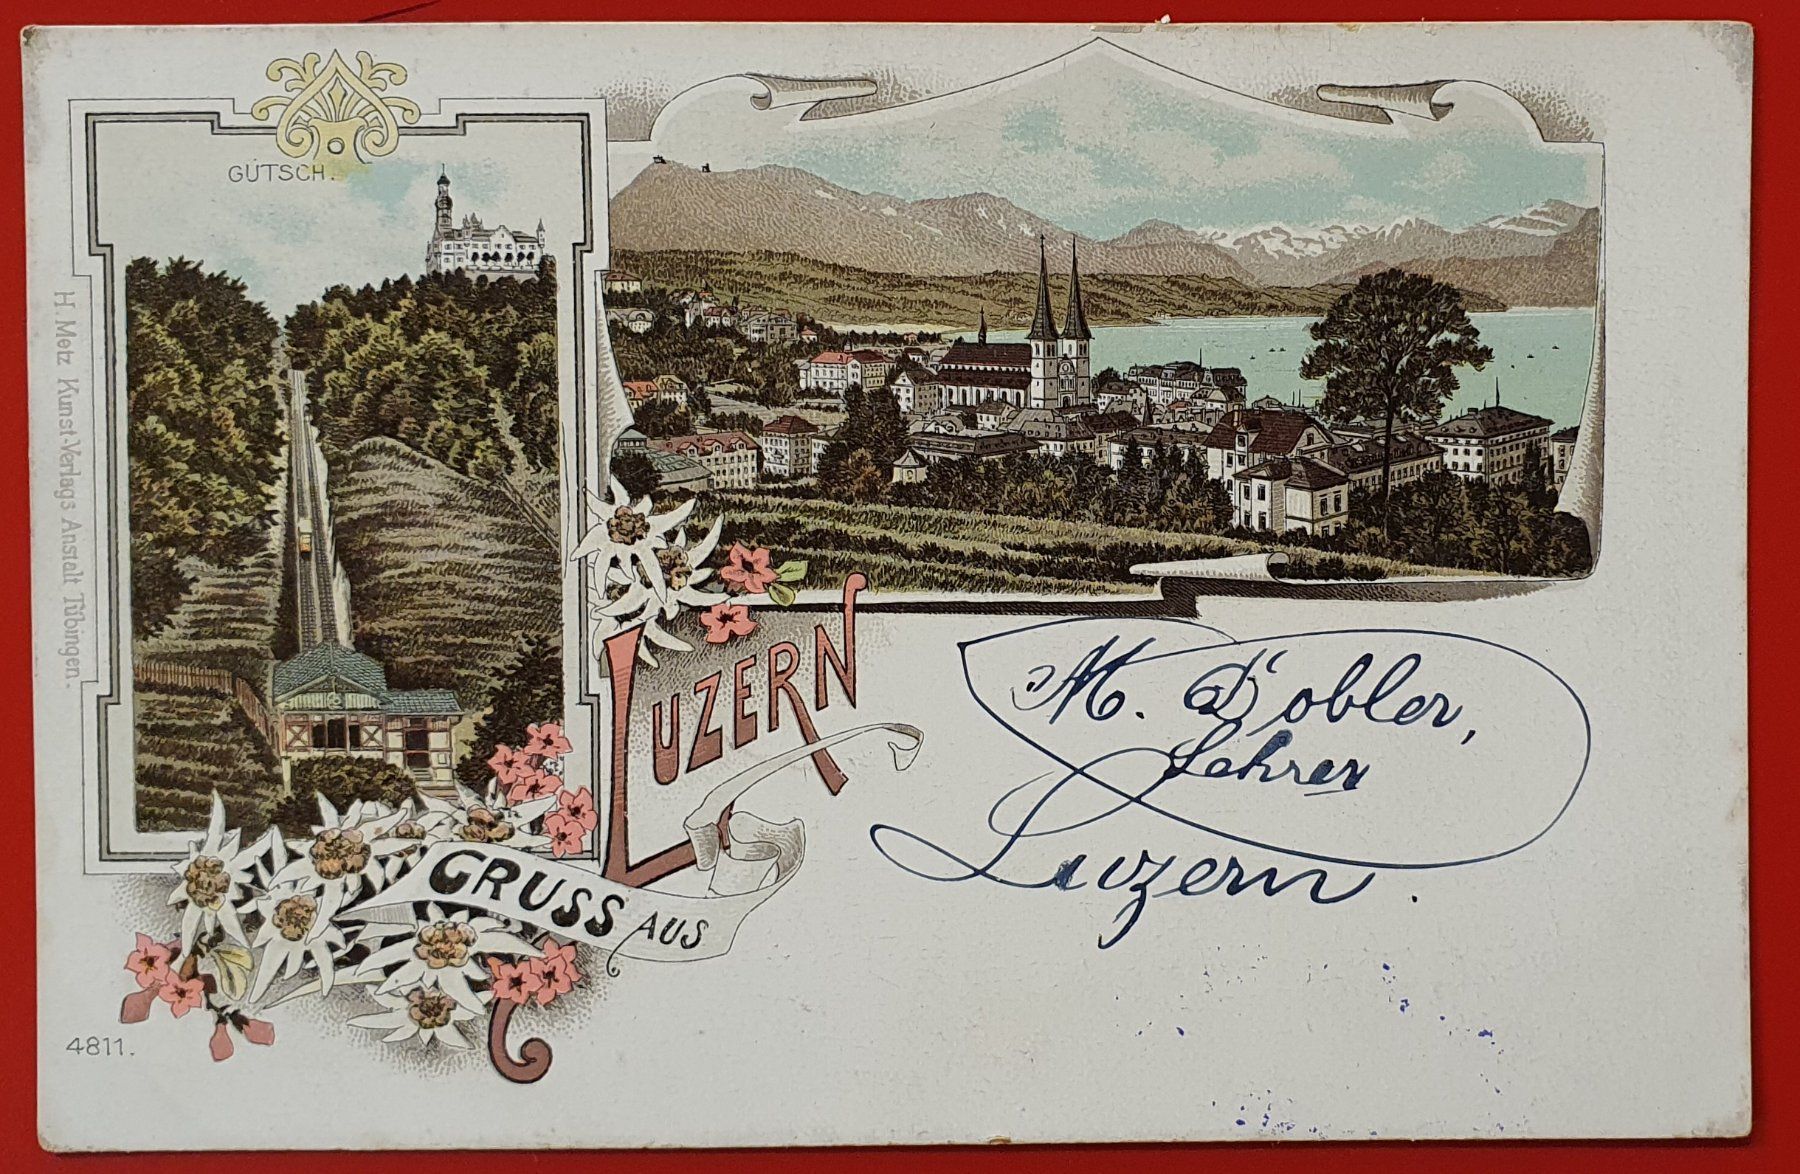 GÜTSCH.
H. Metz Kunst-Verlags Anstalt Tübingen.
GRUSS AUS
LUZERN
M. Dobler,
Lehrer
Luzern.
4811.